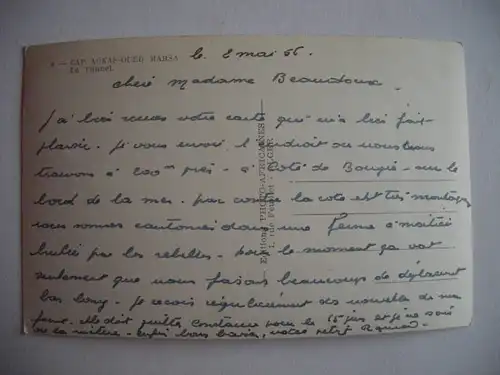 4 - CAP AOKAS-OUED MARSA
Le Tunnel
le 2 mai 56.
Chère Madame Beaudoux.
J'ai bien reçu votre carte qui m'a bien fait
plaisir. Je vous envoi l'endroit ou nous nous
trouvons à 200m près. à Coté de Bougie. sur le
bord de la mer. par contre la cote est très montagne
nous sommes cantonnés dans une ferme à moitiée
brulée par les rebelles. pour le moment ça vat
seulement que nous faisons beaucoup de déplacement
bas long. Je reçois régulièrement des nouvelles de ma
quitter Constance pour le 15 juin et je ne sais
votre petit
Editions PHOTO-AFRICAINES
1, rue ALGER